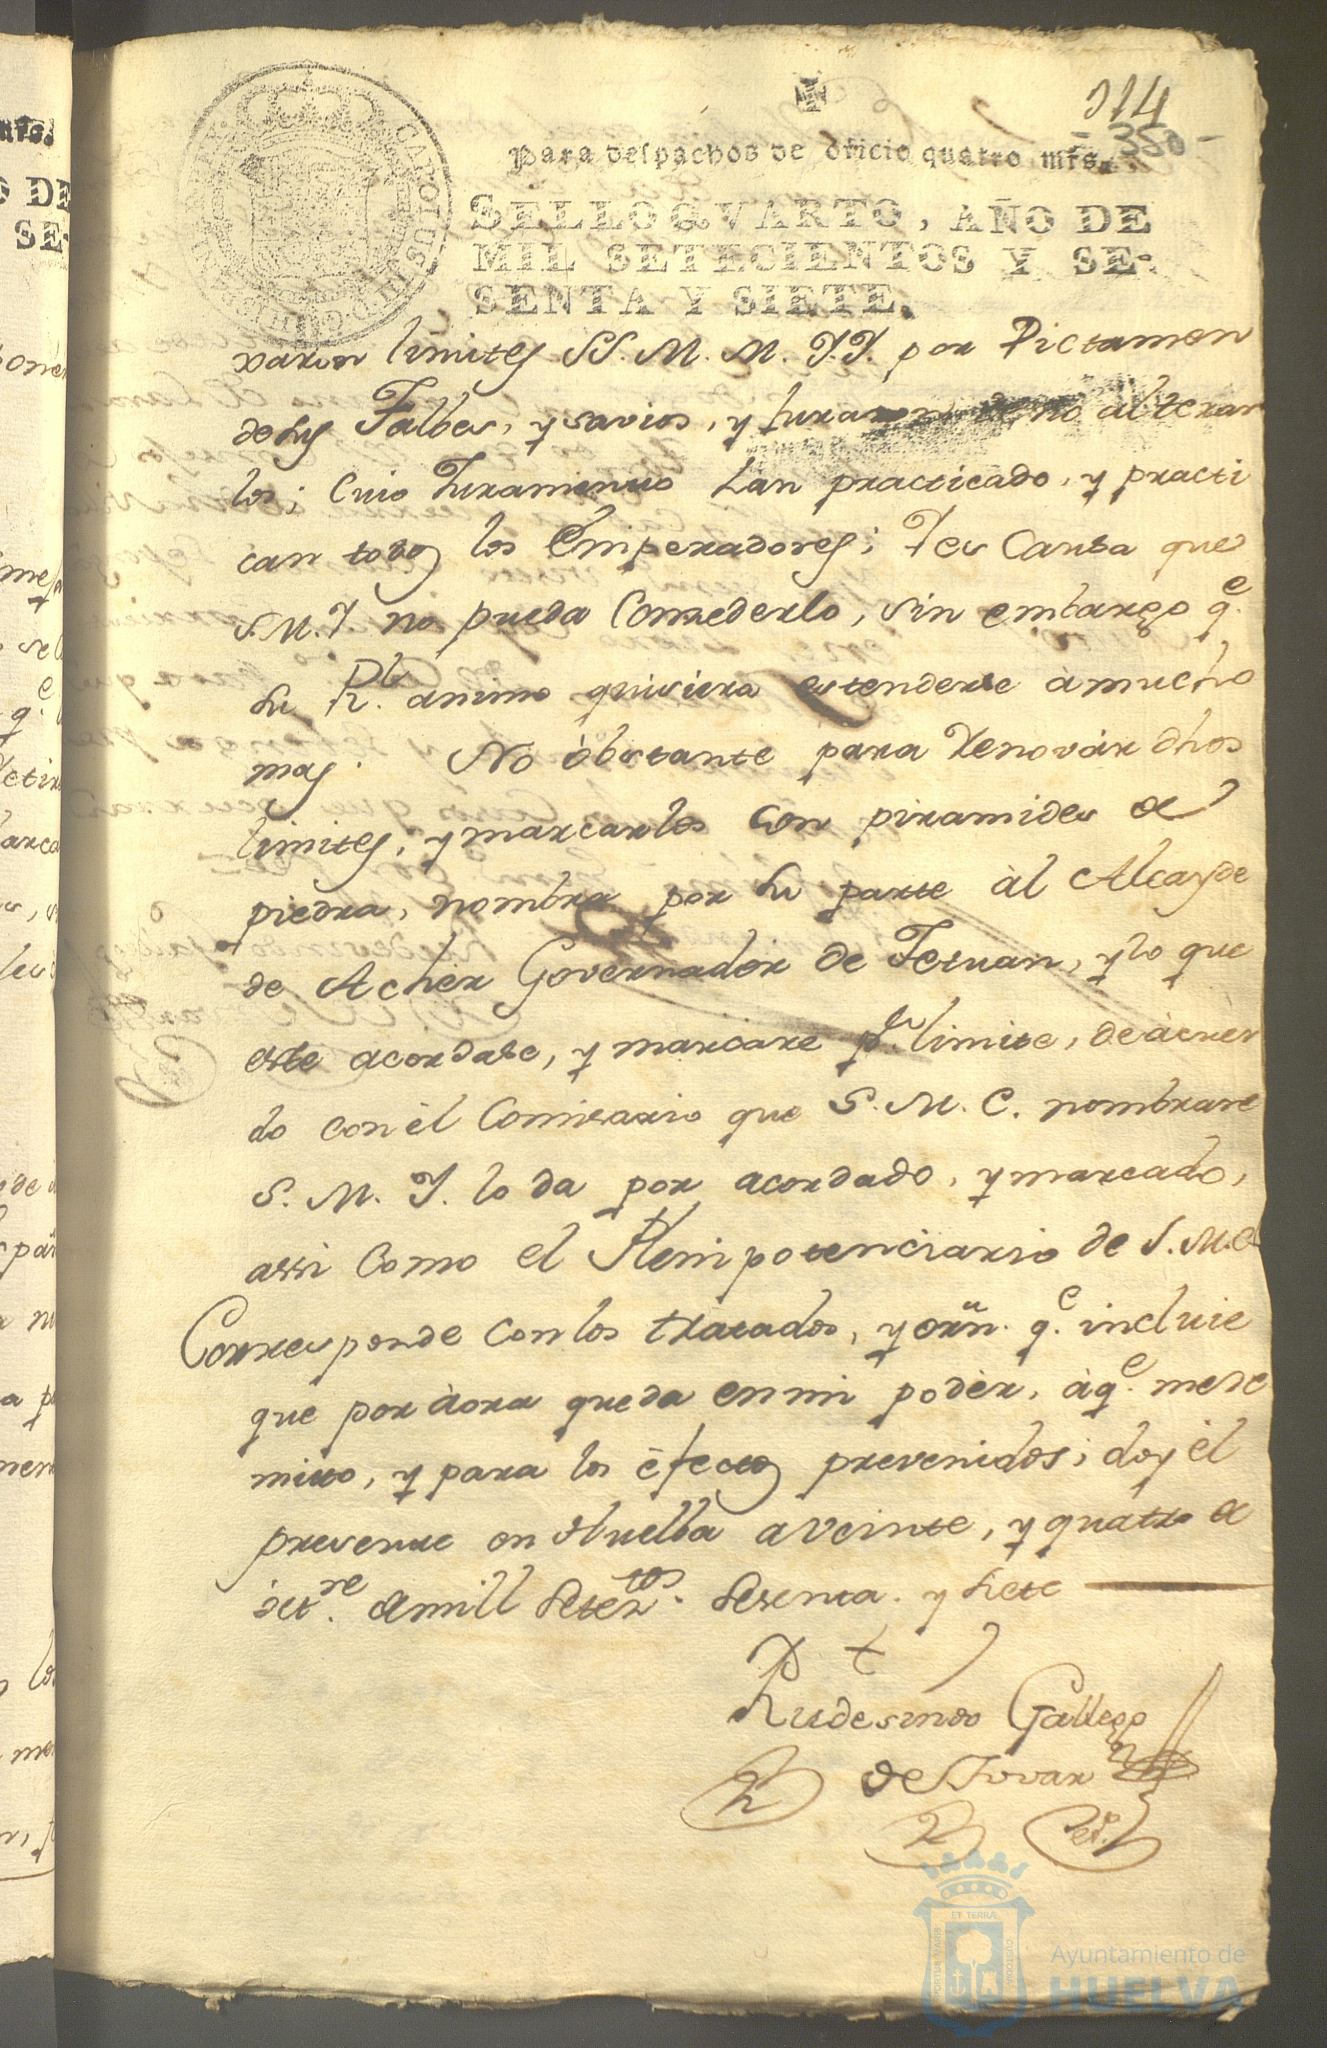 314
- 350 -
Para despachos de oficio quatro mrs.
SELLO QVARTO, AÑO DE
MIL SETECIENTOS Y SE-
SENTA Y SIETE.
CAROLUS III D G HISPANIAR
xaron limites SS. M. M. Y.Y. por Dictamen
de sus Talbes, y savios, y juraron de no alterar
los; Cuio Juramento han practicado, y practi
can todos los Emperadores; Y es Causa que
S.M.Y. no pueda Concederlo, sin embargo qe.
su Rl. animo quisiera estenderse à mucho
mas. No óbstante para renovár dhos
limites, y marcarlos con piramides de
piedra, nombra por su parte àl Alcayde
de Acher Governador de Tetuan, y lo que
este acordase, y marcare pr. limite, de àcuer
do con èl Comisario que S. M. C. nombrare
S. M. Y. lo da por acordado, y marcado,
assi Como el Plenipotenciario de S.M.C.
Corresponde con los tratados, y orñ. qe. incluie
que por àora queda en mi podèr, àqe. me re
mito, y para los èfectos prevenidos; doy èl
presente en Huelba a veinte, y quatro de
Setre. de mill Seteztos. Sesenta. y siete
Rudesindo Gallego
de Tovar
PORTUS MARIS ET TERRAE CUSTODIA
Ayuntamiento de
HUELVA